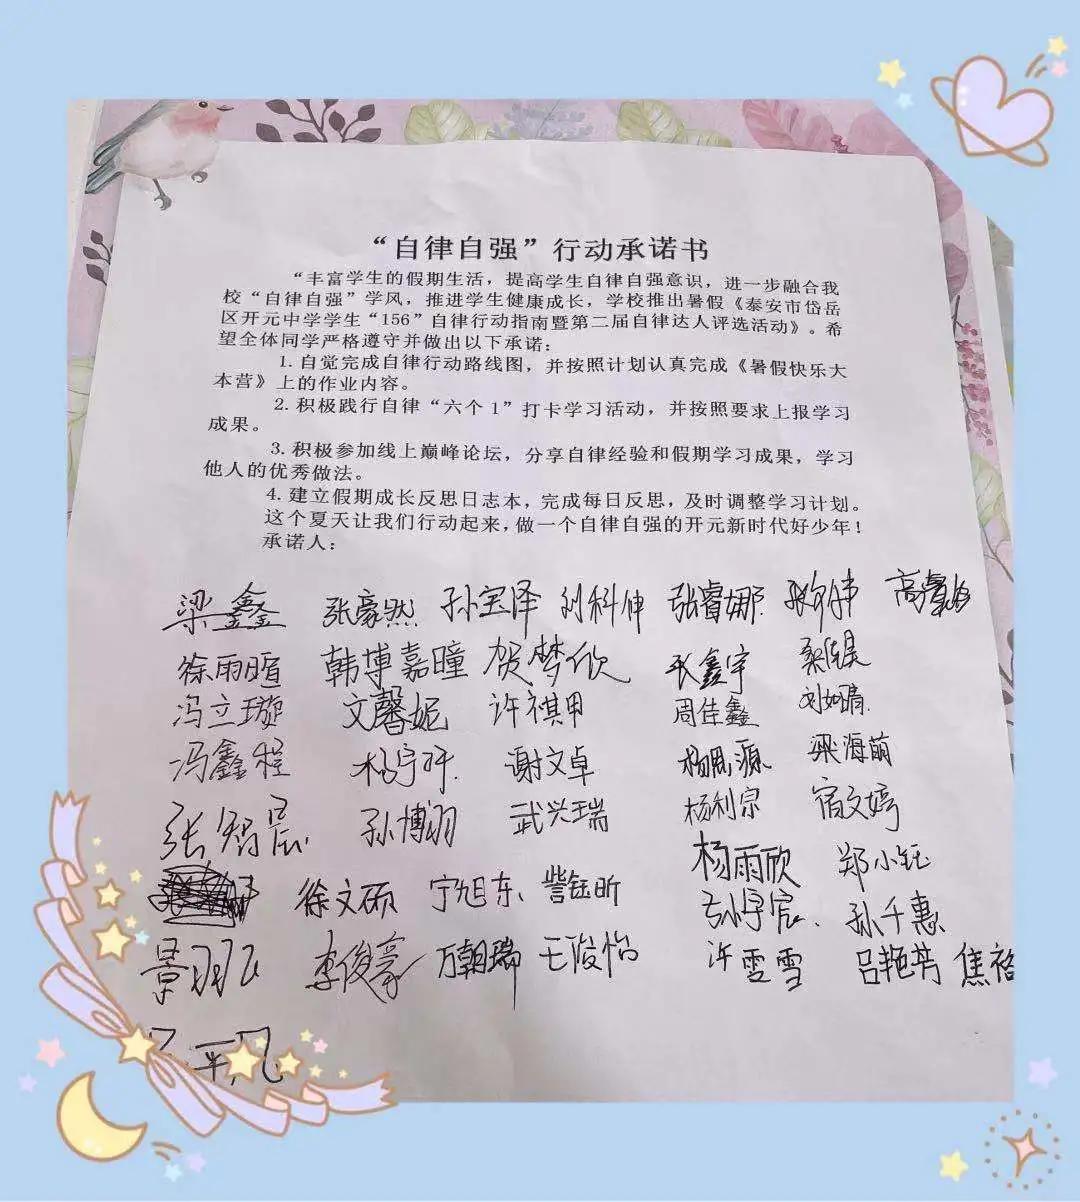 “自律自强”行动承诺书
“丰富学生的假期生活，提高学生自律自强意识，进一步融合我
校“自律自强”学风，推进学生健康成长，学校推出暑假《泰安市岱岳
区开元中学学生“156”自律行动指南暨第二届自律达人评选活动》。希
望全体同学严格遵守并做出以下承诺：
1. 自觉完成自律行动路线图，并按照计划认真完成《暑假快乐大
本营》上的作业内容。
2. 积极践行自律“六个1”打卡学习活动，并按照要求上报学习
成果。
3. 积极参加线上巅峰论坛，分享自律经验和假期学习成果，学习
他人的优秀做法。
4. 建立假期成长反思日志本，完成每日反思，及时调整学习计划。
这个夏天让我们行动起来，做一个自律自强的开元新时代好少年！
承诺人：
梁鑫 张豪然 孙宝泽 刘科伸 张睿娜
徐雨暄 韩博嘉瞳 贺梦欣 张鑫宇
冯立璇 文馨妮 许祺甲 周佳鑫 刘如晴
冯鑫程 谢文卓 梁海萌
张智宸 孙博翊 武兴瑞 杨利宗 宿文婷
杨雨欣 郑小钰
徐文硕 宁旭东 訾钰昕 孙宇宸 孙千惠
李俊豪 万朝瑞 王俊怡 许雯雪 吕艳芳 焦裕
平凡